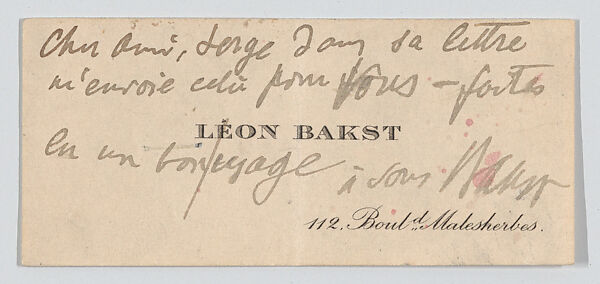 Cher ami, Serge dans sa lettre
m'envoie cela pour vous – faites
LÉON BAKST
en un bon usage
à vous Bakst
112, Bould. Malesherbes.